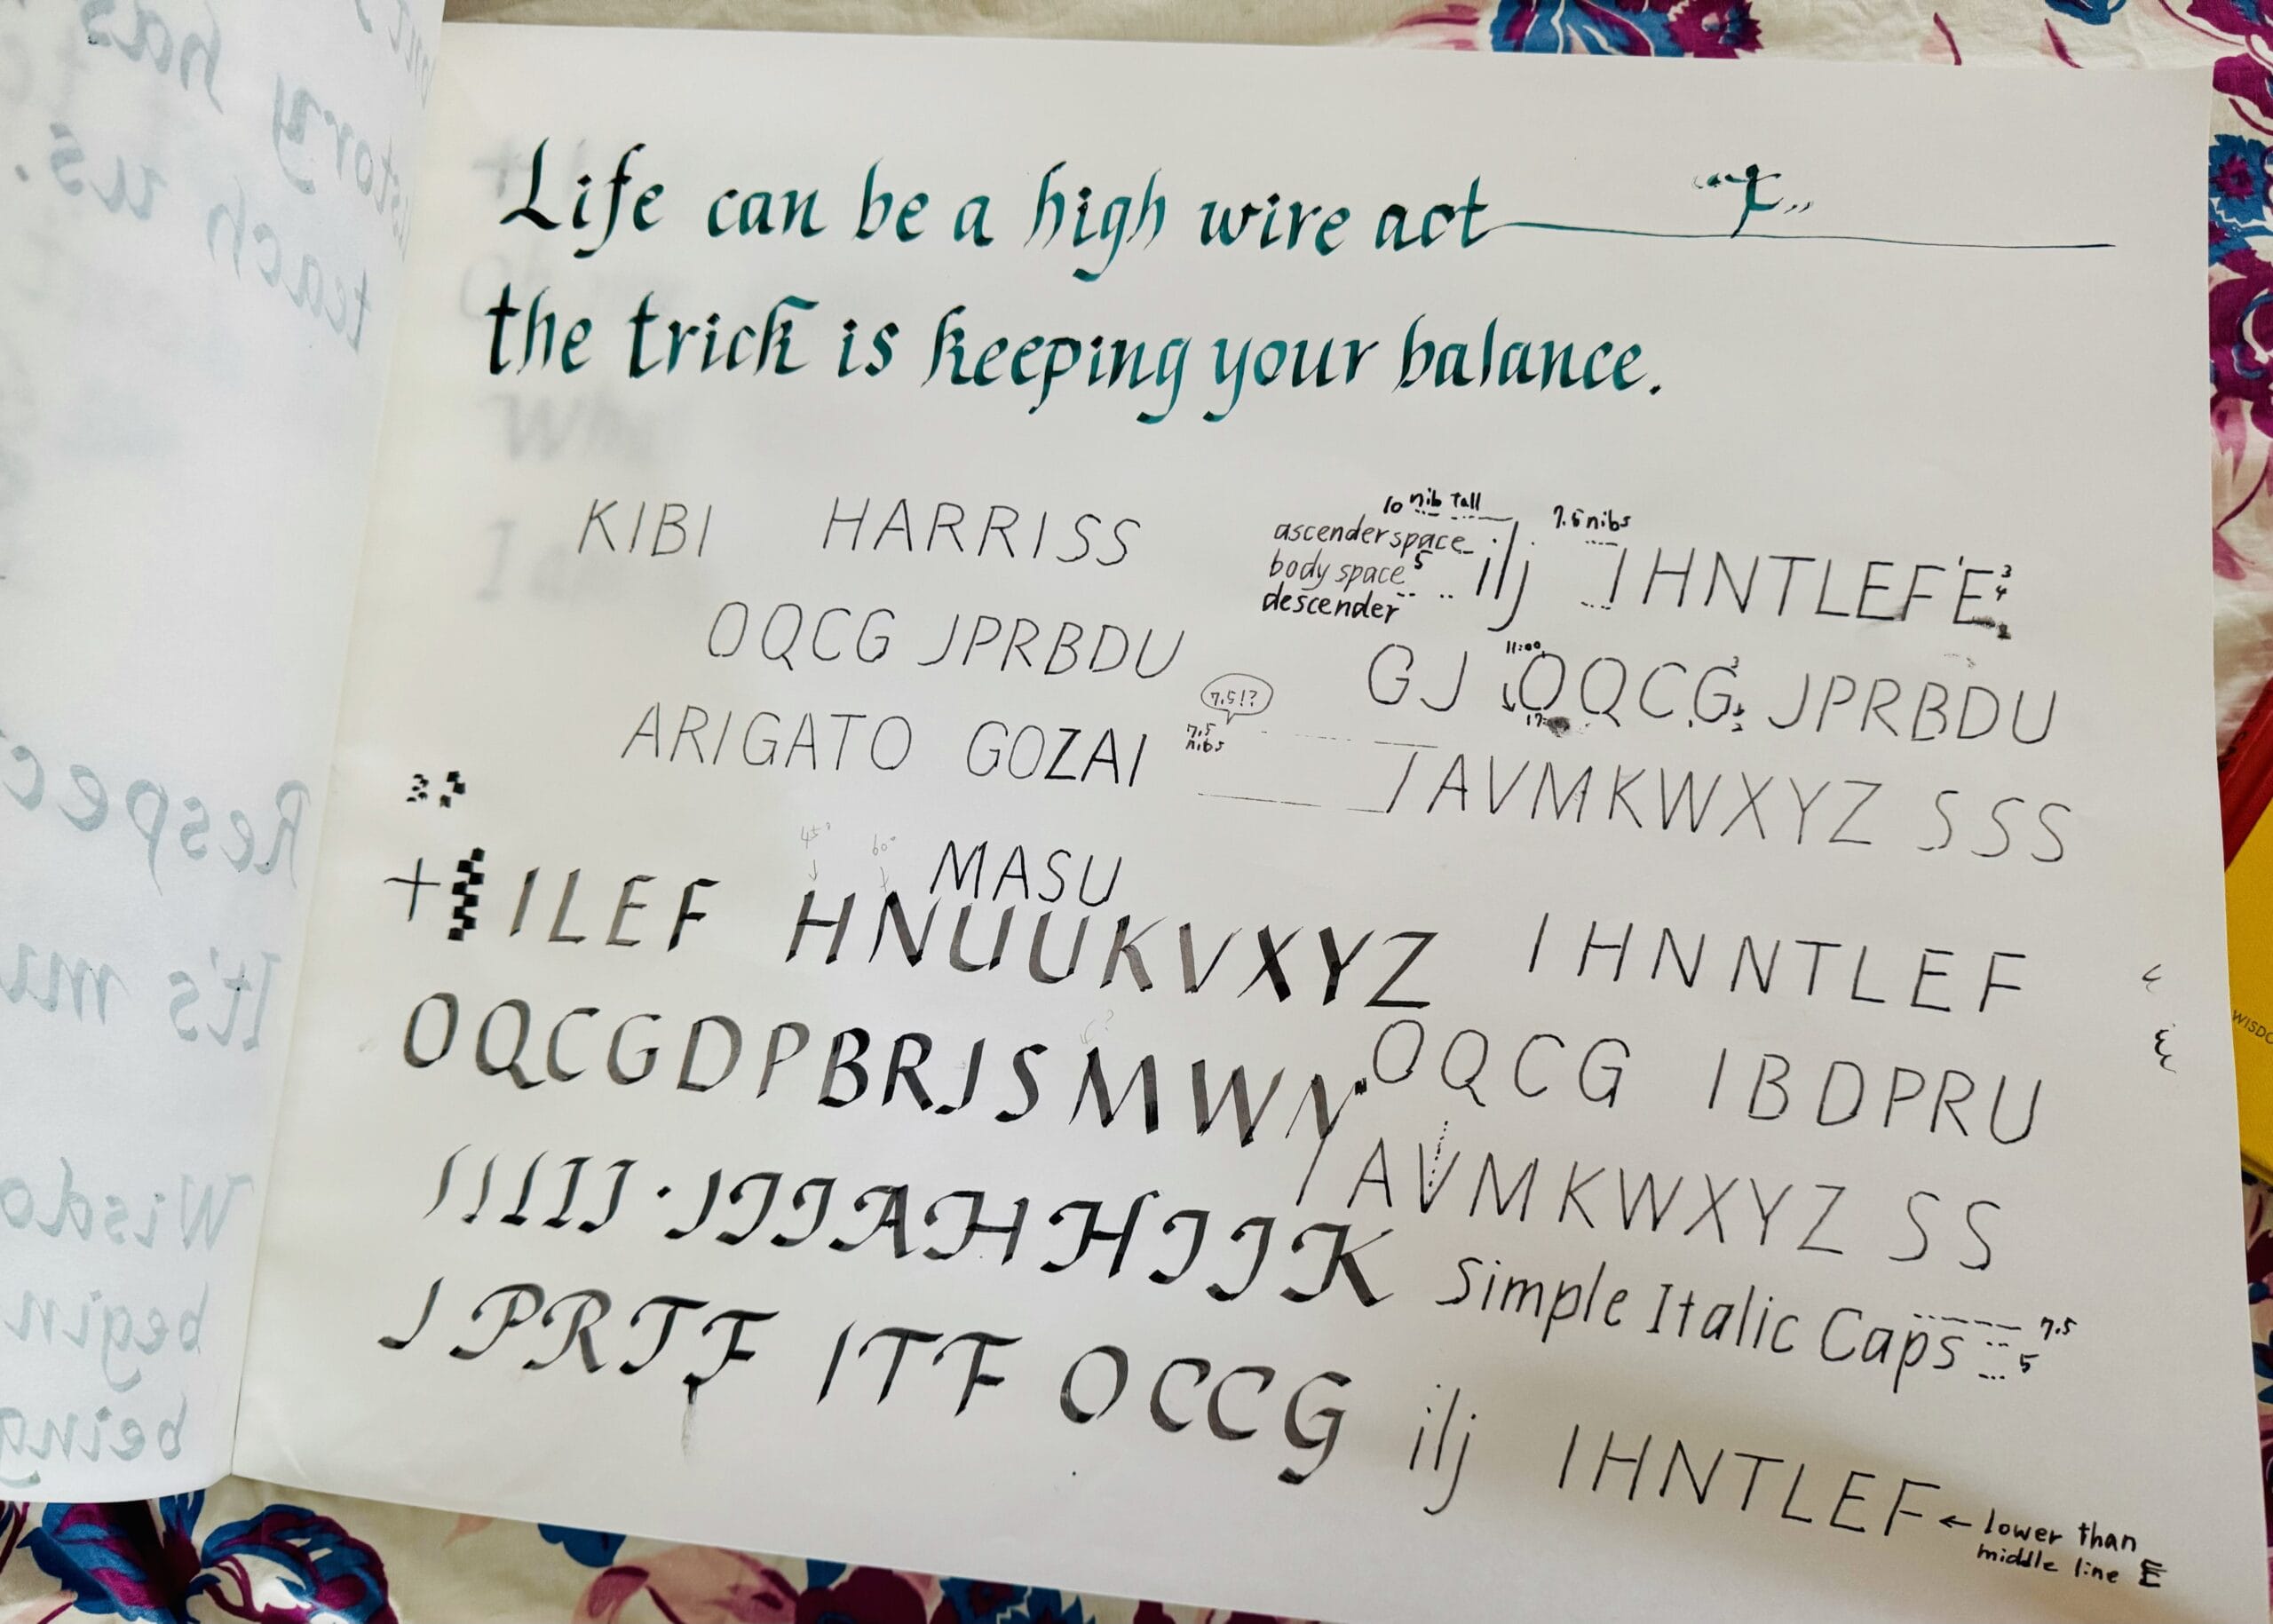 Life can be a high wire act
the trick is keeping your balance.
KIBI HARRISS
OQCG JPRBDU
ARIGATO GOZAI
MASU
10 nib tall
ascender space
body space 5
descender
ilj
7.5 nibs
IHNTLEFE
1 3 4 2
GJ 11:00 OQCG JPRBDU
7.5!?
7.5 nibs
IAVMKWXYZ SSS
45°
60°
ILEF HNUUKVXYZ
OQCGDPBRJSMWN
IIIII JJJJAHHIJK
JPRTF ITF OCCG
IHNNTLEF
OQCG IBDPRU
IAVMKWXYZ SS
Simple Italic Caps
7.5
5
ilj IHNTLEF ← lower than
middle line E
has
story
teach us.
Respec
It's mu
Wisdo
begin
being
Wh
I a
WISDO